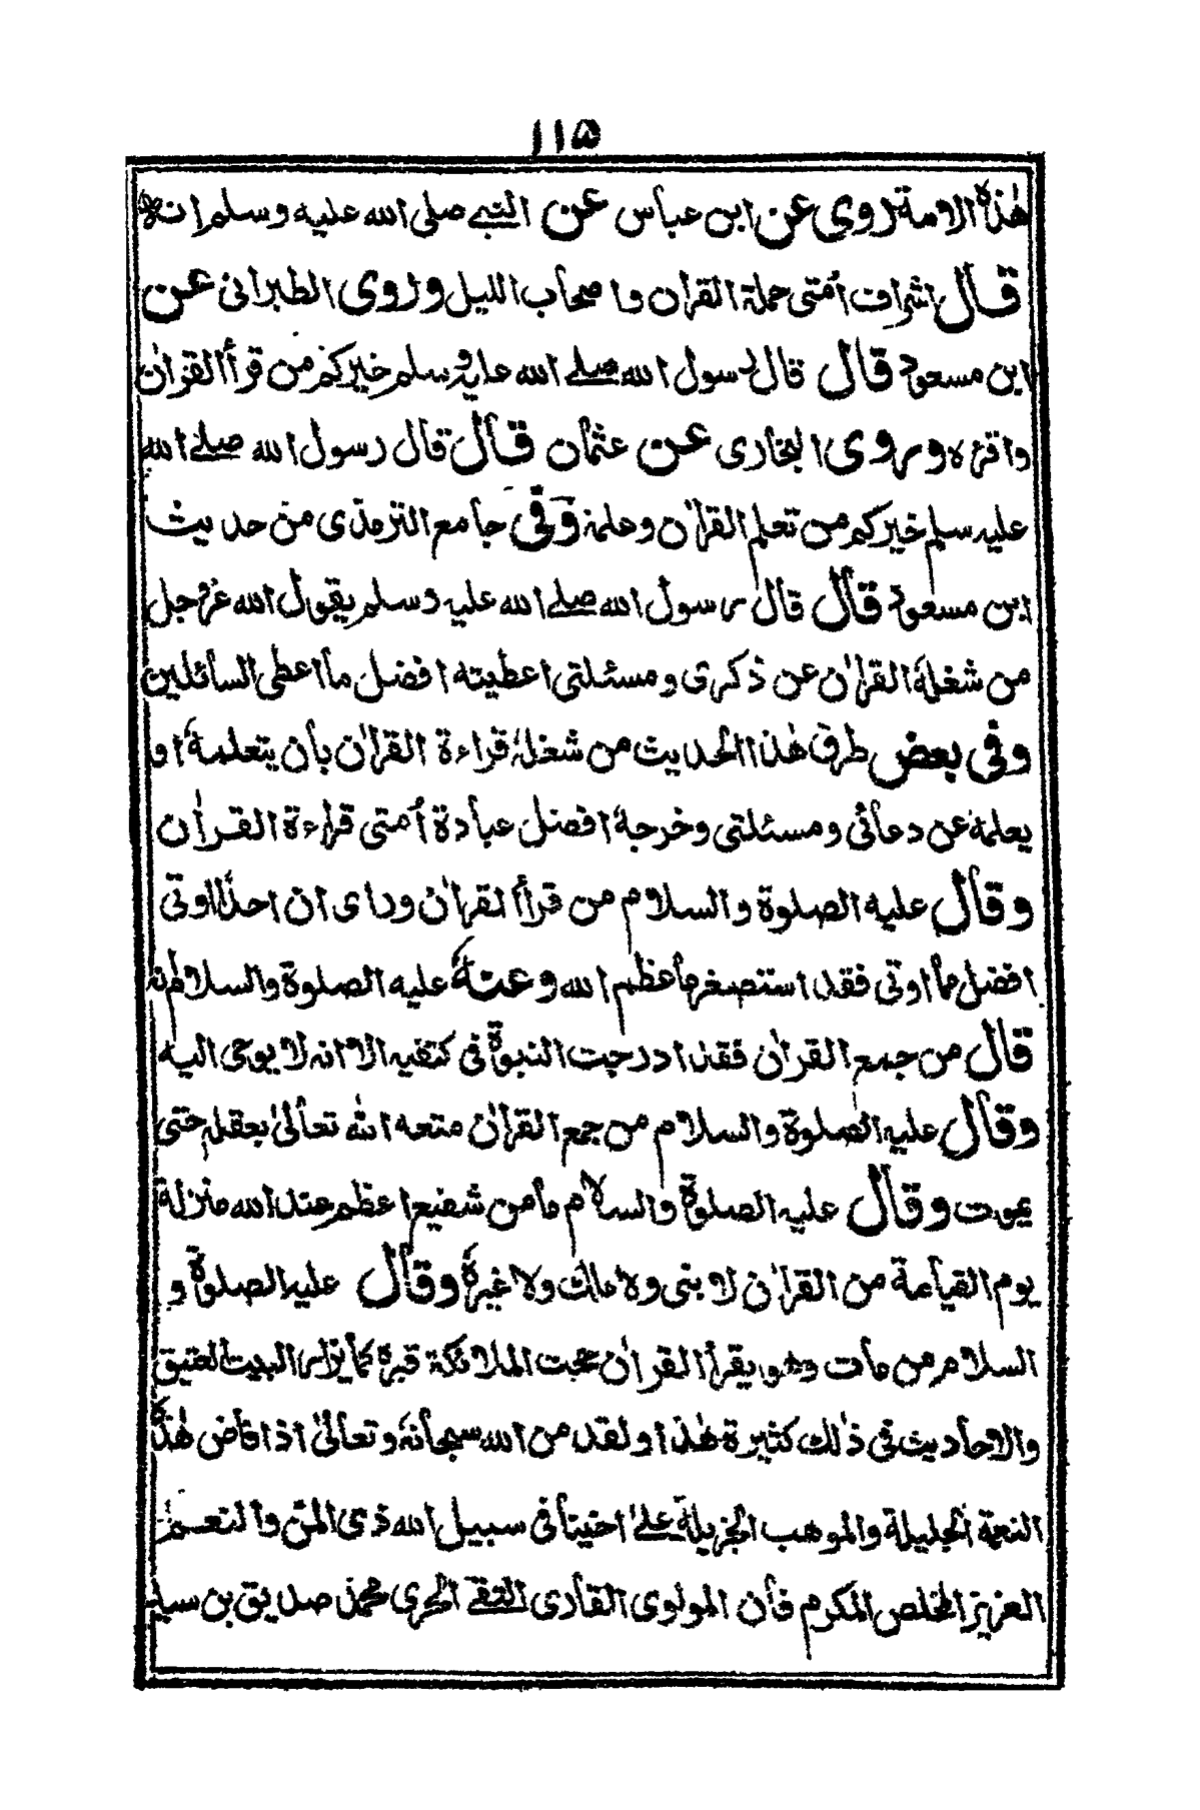 ١١٥
هٰذه الامة روى عن ابن عباس عن النبي صلى الله عليه وسلم انه
قال اشراف اُمتى حملة القرٰان واصحاب الليل وروى الطبرانى عن
ابن مسعود قال قال رسول الله صلے الله عليه وسلم خيركم من قرأ القرٰان
واقرءه وروى البخارى عن عثمان قال قال رسول الله صلے الله
عليه سلم خيركم من تعلم القرٰان وعلمه وفى جامع الترمذى من حديث
ابن مسعود قال قال رسول الله صلے الله عليه وسلم يقول الله عزوجل
من شغله القرٰان عن ذكرى ومسئلتى اعطيته افضل ما اعطى السائلين
وفى بعض طرق هٰذا الحديث من شغله قراءة القرٰان بان يتعلمهٗ او
يعلمه عن دعائى ومسئلتى وخرجهٗ افضل عبادة اُمتى قراءة القرٰان
وقال عليه الصلوة والسلام من قرأ القرٰان ورای ان احدًا اوتى
افضل مما اوتى فقد استصغر ما عظم الله وعنهٗ عليه الصلوة والسلام انه
قال من جمع القرٰان فقد ادرجت النبوة فى كتفيه الا انه لا يوحى اليه
وقال عليه الصلوة والسلام من جمع القرٰان متعه الله تعالىٰ بعقله حتى
يموت وقال عليه الصلوة والسلام ما من شفيع اعظم عند الله منزلة
يوم القيامة من القرٰان لا نبى ولا ملك ولا غيرهٗ وقال عليه الصلوة و
السلام من مات وهو يقرأ القرٰان حجت الملائكة قبره كما يزار البيت العتيق
والاحاديث فى ذٰلك كثيرة هٰذا ولقد من الله سبحانهٗ وتعالىٰ اذ افاض هٰذهٖ
النعمة الجليلة والموهب الجزيلة علےٰ اخينا فى سبيل الله ذى المن والنعم
العزيز المخلص المكرم فان المولوى القارى التقے الحرى محمد صديق بن سليم